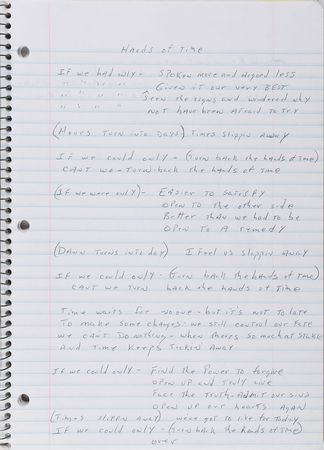 Hands of Time
If we had only - Spoken more and Argued less
" " " " Given it our very Best
" " " " Seen the signs and wondered why
Not have been Afraid to try
(Hours turn into days) Times slippin Away
If we could only - (Turn back the hands of Time)
Cant we - turn back the hands of Time
(If we were only) - Easier to satisfy
Open to the other side
Better than we had to be
Open to a remedy
(Dawn turns into day) I feel us slippin Away
If we could only - (Turn back the hands of Time)
Cant we turn back the hands of Time
Time waits for no one - but it's not to late
To make some changes - we still control our fate
We cant Do nothing - when theres so much at stake
And Time keeps tickin Away
If we could only - Find the Power to forgive
Open up and truly live
Face the truth - Admit our sins
Open up our hearts Again
(Times slippin Away) we've got to live for today
If we could only - (Turn back the hands of Time)
over